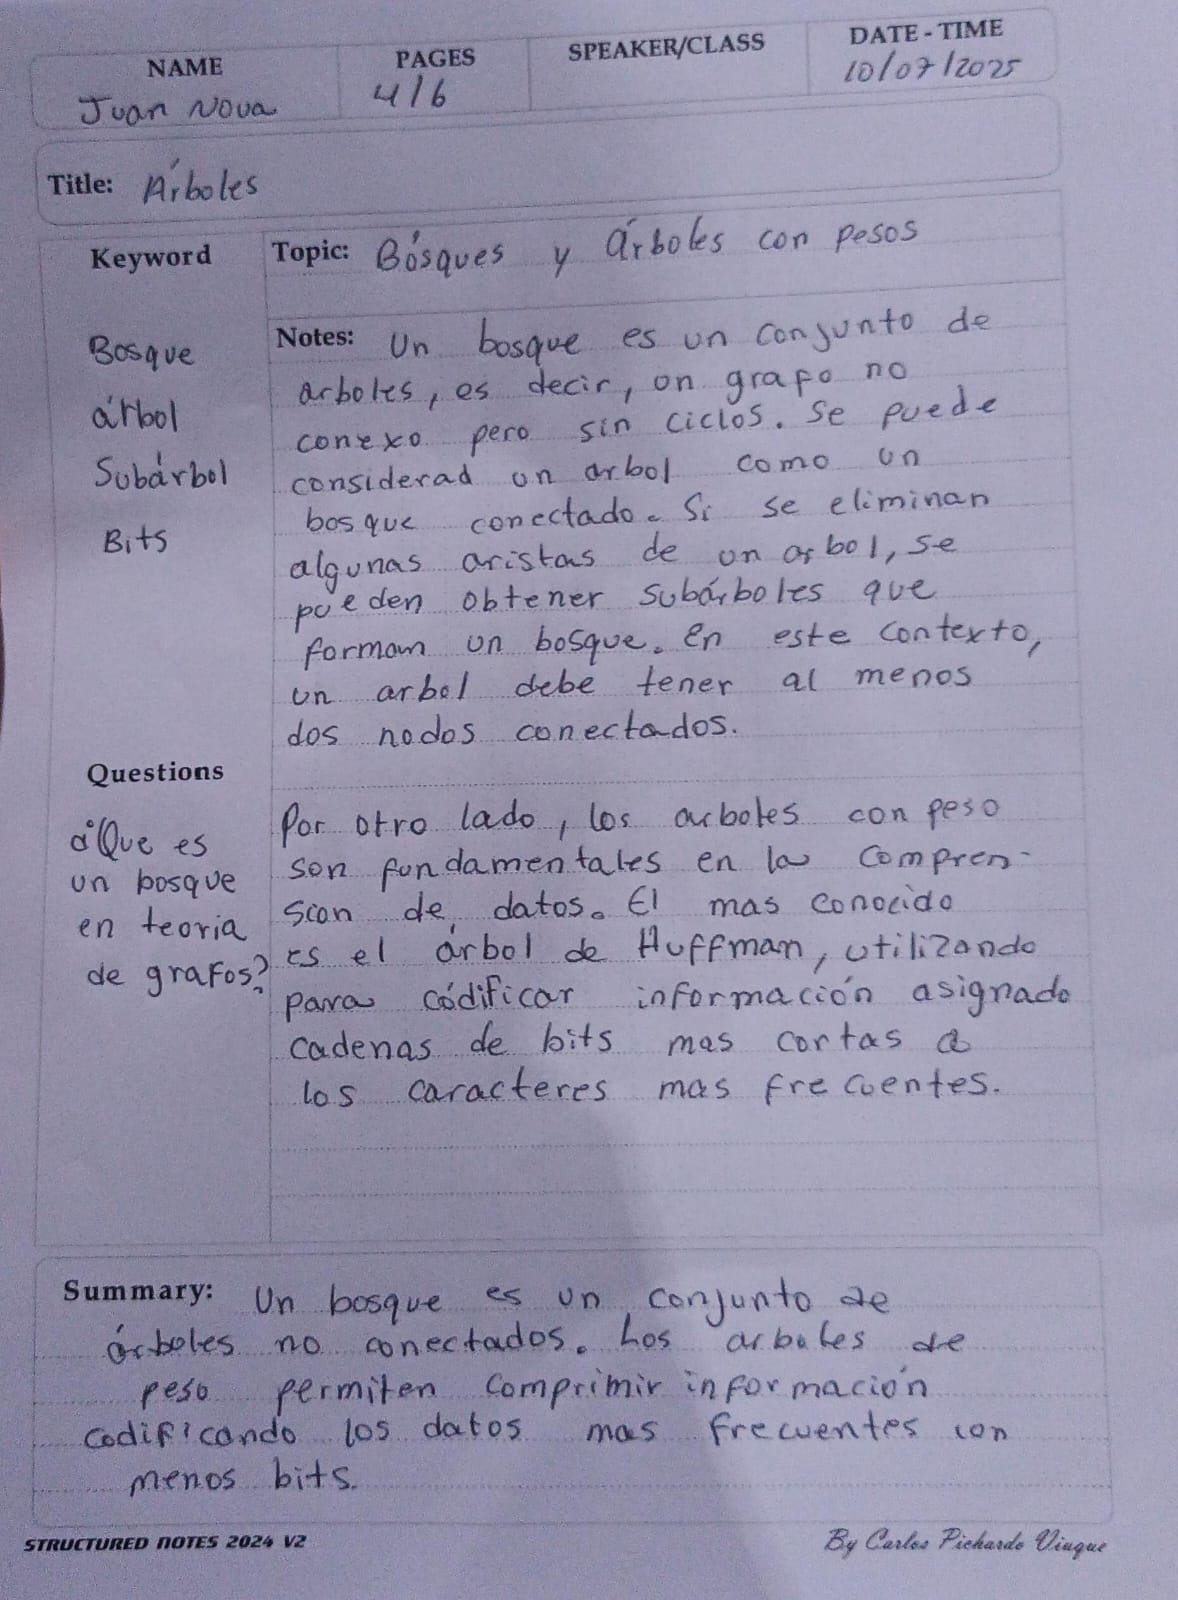 NAME PAGES SPEAKER/CLASS DATE - TIME
Juan Nova 4/6 10/07/2025
Title: Árboles
Keyword
Bosque
árbol
Subárbol
Bits
Topic: Bósques y árboles con pesos
Notes: Un bosque es un conjunto de
arboles, es decir, un grafo no
conexo pero sin ciclos. Se puede
considerad un arbol como un
bosque conectado. Si se eliminan
algunas aristas de un arbol, se
pueden obtener subárboles que
forman un bosque. En este contexto,
un arbol debe tener al menos
dos nodos conectados.
Questions
¿Que es
un bosque
en teoria
de grafos?
Por otro lado, los arboles con peso
son fundamentales en la compren-
sion de datos. El mas conocido
es el árbol de Huffman, utilizando
para códificar información asignado
cadenas de bits mas cortas a
los caracteres mas frecuentes.
Summary: Un bosque es un conjunto de
árboles no conectados. Los arboles de
peso permiten comprimir información
codificando los datos mas frecuentes con
menos bits.
STRUCTURED NOTES 2024 V2 By Carlos Pichardo Viuque